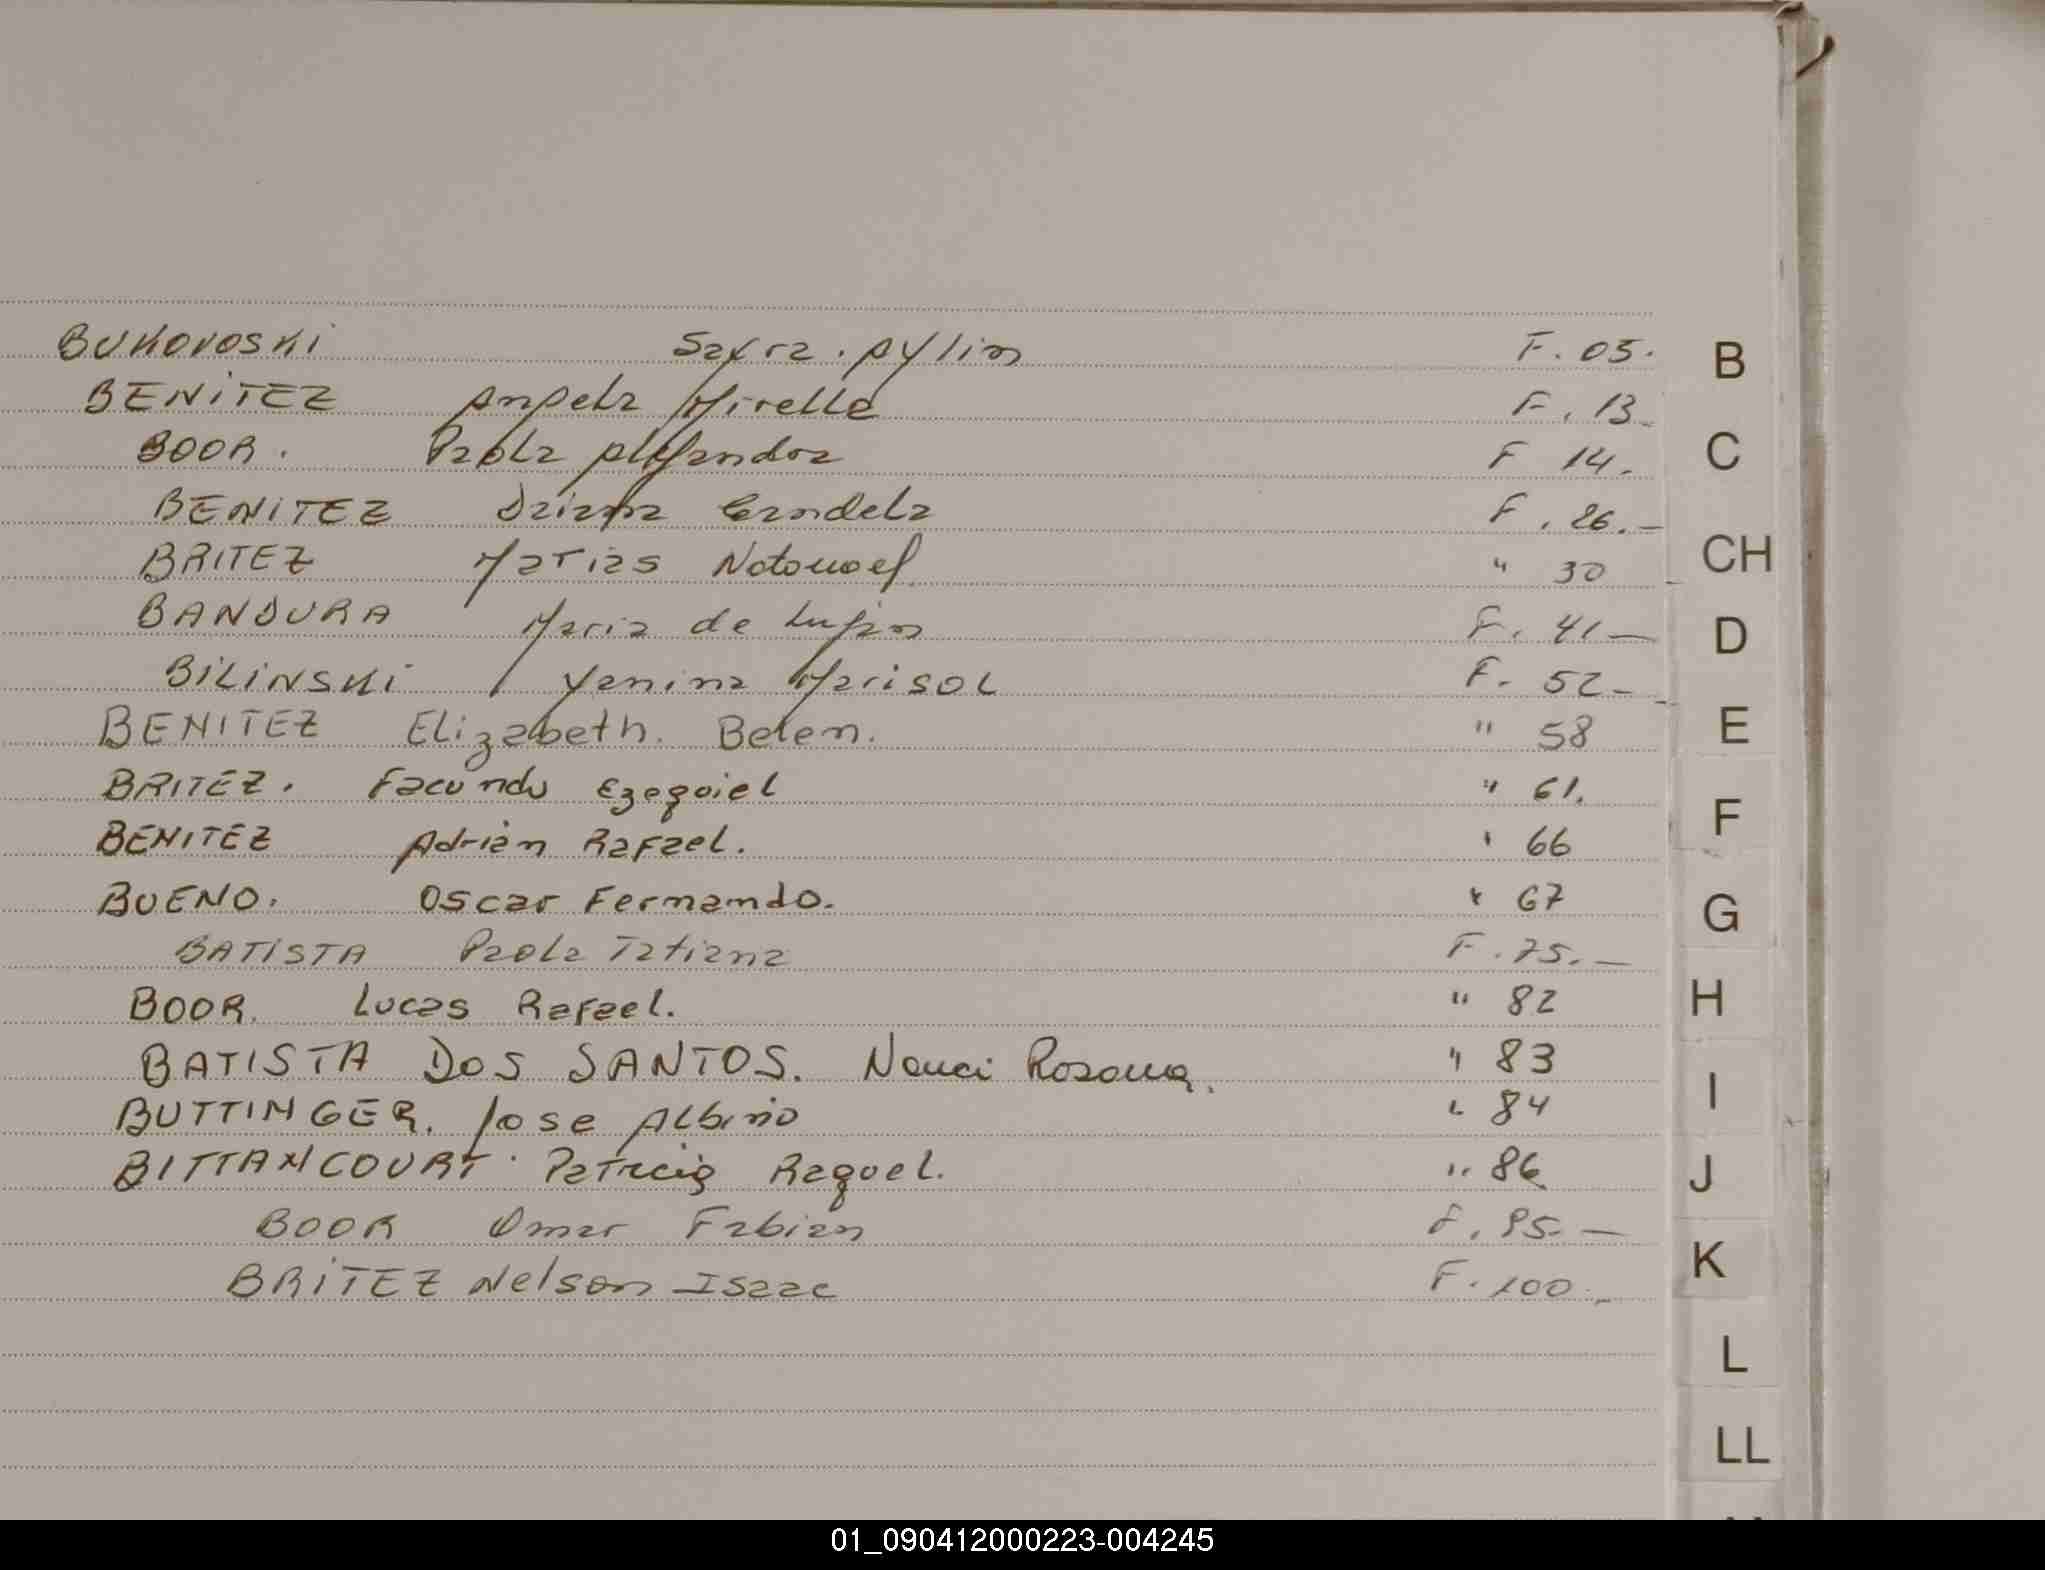 BUKOVOSKI Saxra. Aylin F. 05.
BENITEZ Angela Mirella F. 13_
BOOR. Paola Alejandra F 14.
BENITEZ Daiana Candela F. 26.—
BRITEZ Matias Natanael " 30
BANDURA Maria de Lujan F. 41—
BILINSKI Yanina Marisol F. 52_
BENITEZ Elizabeth. Belem. " 58
BRITEZ. Facundo Ezequiel " 61.
BENITEZ Adrián Rafael. " 66
BUENO. Oscar Fernando. " 67
BATISTA Paola Tatiana F. 75.—
BOOR. Lucas Rafael. " 82
BATISTA DOS SANTOS. Nanci Rosana. " 83
BUTTINGER. Jose Albino " 84
BITTANCOURT. Patricia Raquel. " 86
BOOR Omar Fabian F. 95.—
BRITEZ Nelson Isaac F. 100._
B
C
CH
D
E
F
G
H
I
J
K
L
LL
01_090412000223-004245